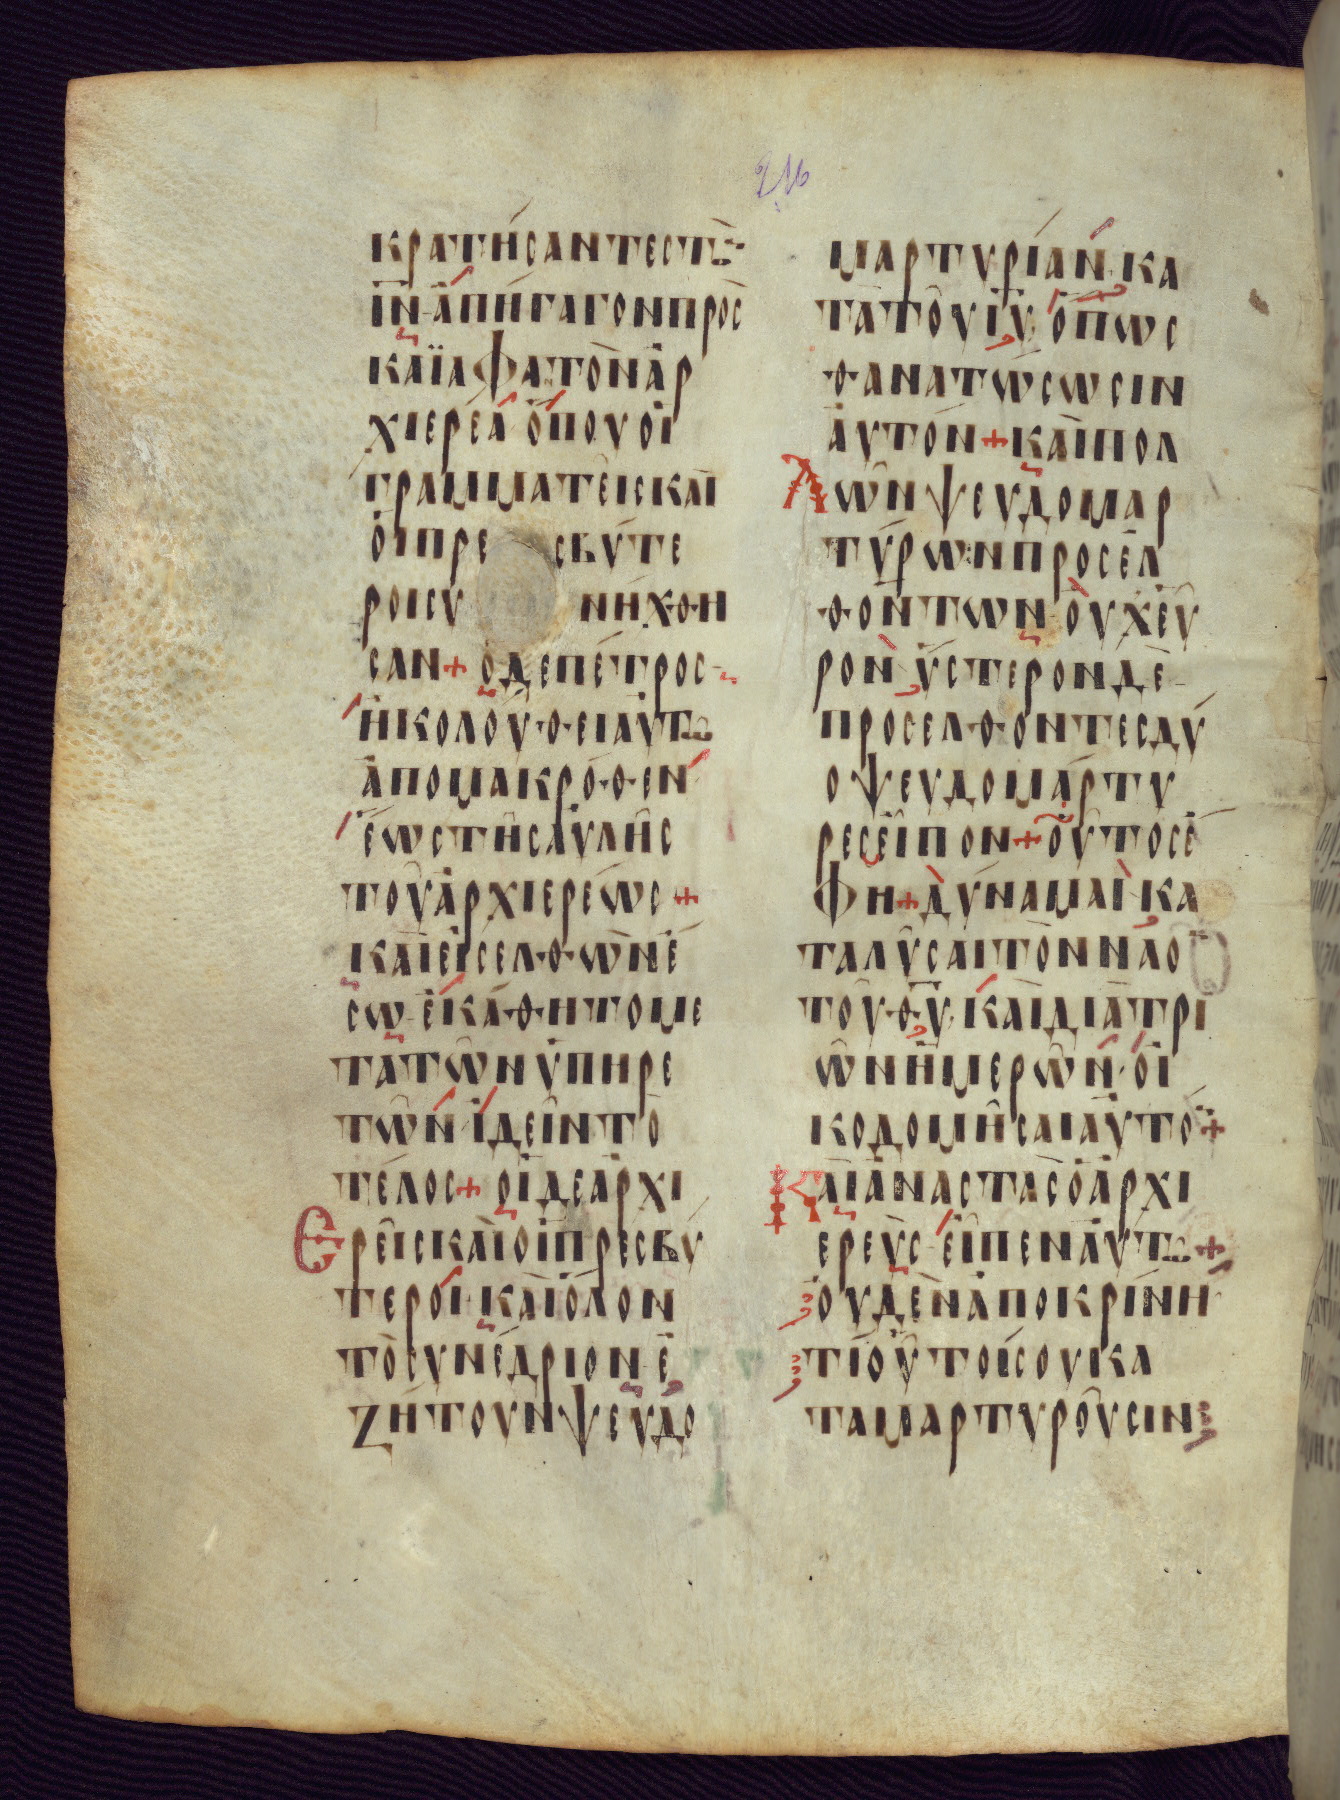 216
κρατήσαντεστὸ
ἰ̅ν̅ ἀπήγαγονπρὸς
καϊάφατὸνἀρ
χιερέα ὅπουοἱ
γραμματεῖςκαὶ
ὁιπρεσβύτε
ροισυνήχθη
σαν + ὁδεπέτρος
ἠκολούθειἀυτῶ
ἀπομακρόθεν
ἕωςτῆςἀυλῆς
τοῦἀρχιερέως +
καὶεἰσελθὼνἔ
σω ἐκάθητομε
τατῶνὑπηρε
τῶν ἰδεῖντὸ
τέλος + ὁιδεἀρχι
Ερεῖςκαὶοἱπρεσβύ
τεροι καὶὅλον
τὸσυνέδριον ἐ
ζήτουνψευδο
μαρτυρίαν κα
τὰτοῦἰ̅υ̅ ὅπως
θανατώσωσιν
ἀυτόν + καὶπολ
Λῶνψευδομαρ
τύρωνπροσελ
θόντων ὀυχεῦ
ρον ὕστερονδὲ
προσελθόντεςδύ
οψευδομάρτυ
ρεςεἶπον + ὁῦτοςἔ
φη + δύναμαὶκα
ταλῦσαιτὸνναὸ
τοῦθ̅υ̅ καὶδιατρι
ῶνἡμερῶν ὀι
κοδομῆσαιἀυτό +
Καὶἀναστὰςὁἀρχι
ερεὺς εἶπενἀυτῶ +
ὀυδὲνἀποκρίνη
τίοῦτοίσουκα
ταμαρτυροῦσιν